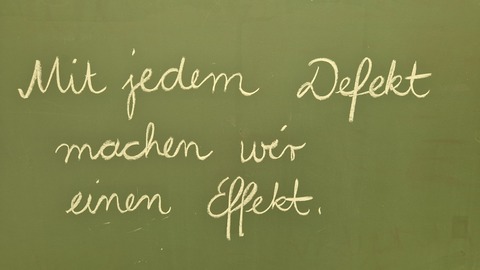 Mit jedem Defekt
machen wir
einen Effekt.